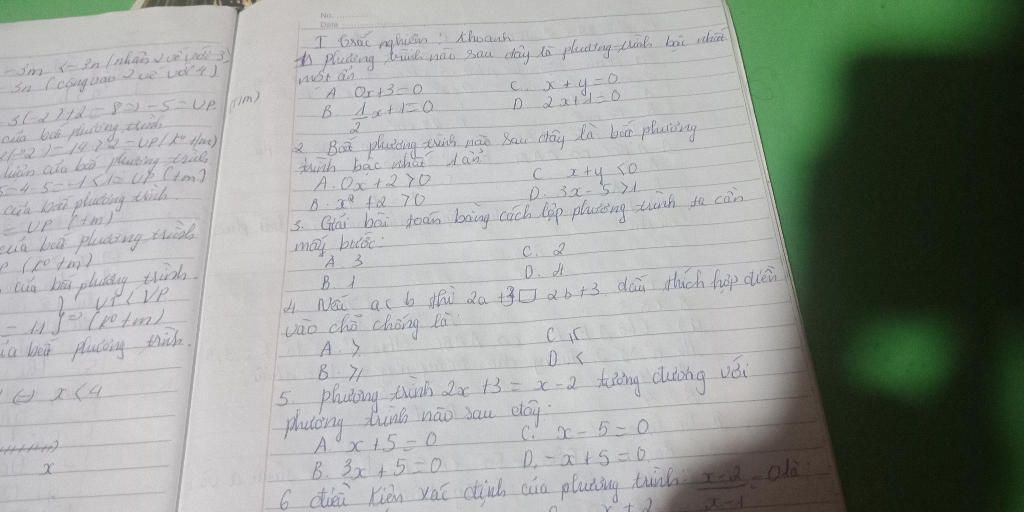 No.
Date
I Trắc nghiệm: khoanh
1) Phương trình nào sau đây là phương trình bậc nhất
một ẩn
A. 0x+3=0 C. x+y=0
B. 1/2 x+1=0 D. 2x+1=0
2. Bất phương trình nào sau đây là bất phương
trình bậc nhất 1 ẩn
A. 0x+2>0 C. x+y<0
B. x²+2>0 D. 3x-5>1
3. Giải bài toán bằng cách lập phương trình ta cần
mấy bước:
A. 3 C. 2
B. 1 D. 4
4. Nếu a<b thì 2a+3 □ 2b+3 dấu thích hợp điền
vào chỗ chống là:
A. > C. ≤
B. ≥ D. <
5. phương trình 2x+3=x-2 tương đương với
phương trình nào sau đây.
A. x+5=0 C. x-5=0
B. 3x+5=0 D. -x+5=0
6 điều kiện xác định của phương trình: x-2/x-1=0 là:
x+2
-3m <-3n (nhân 2 vế với 3)
3n (cộng vào 2 vế với 4)
3(-2)+2=8=>-5=VP (tm)
của bất phương trình
của bất phương trình
5=4-5=-1<1=VP (tm)
của bất phương trình.
= VP (tm)
của bất phương trình
P (ko tm)
của bất phương trình.
VP
-11 } => (ko tm)
của bất phương trình.
(=) x<4
x